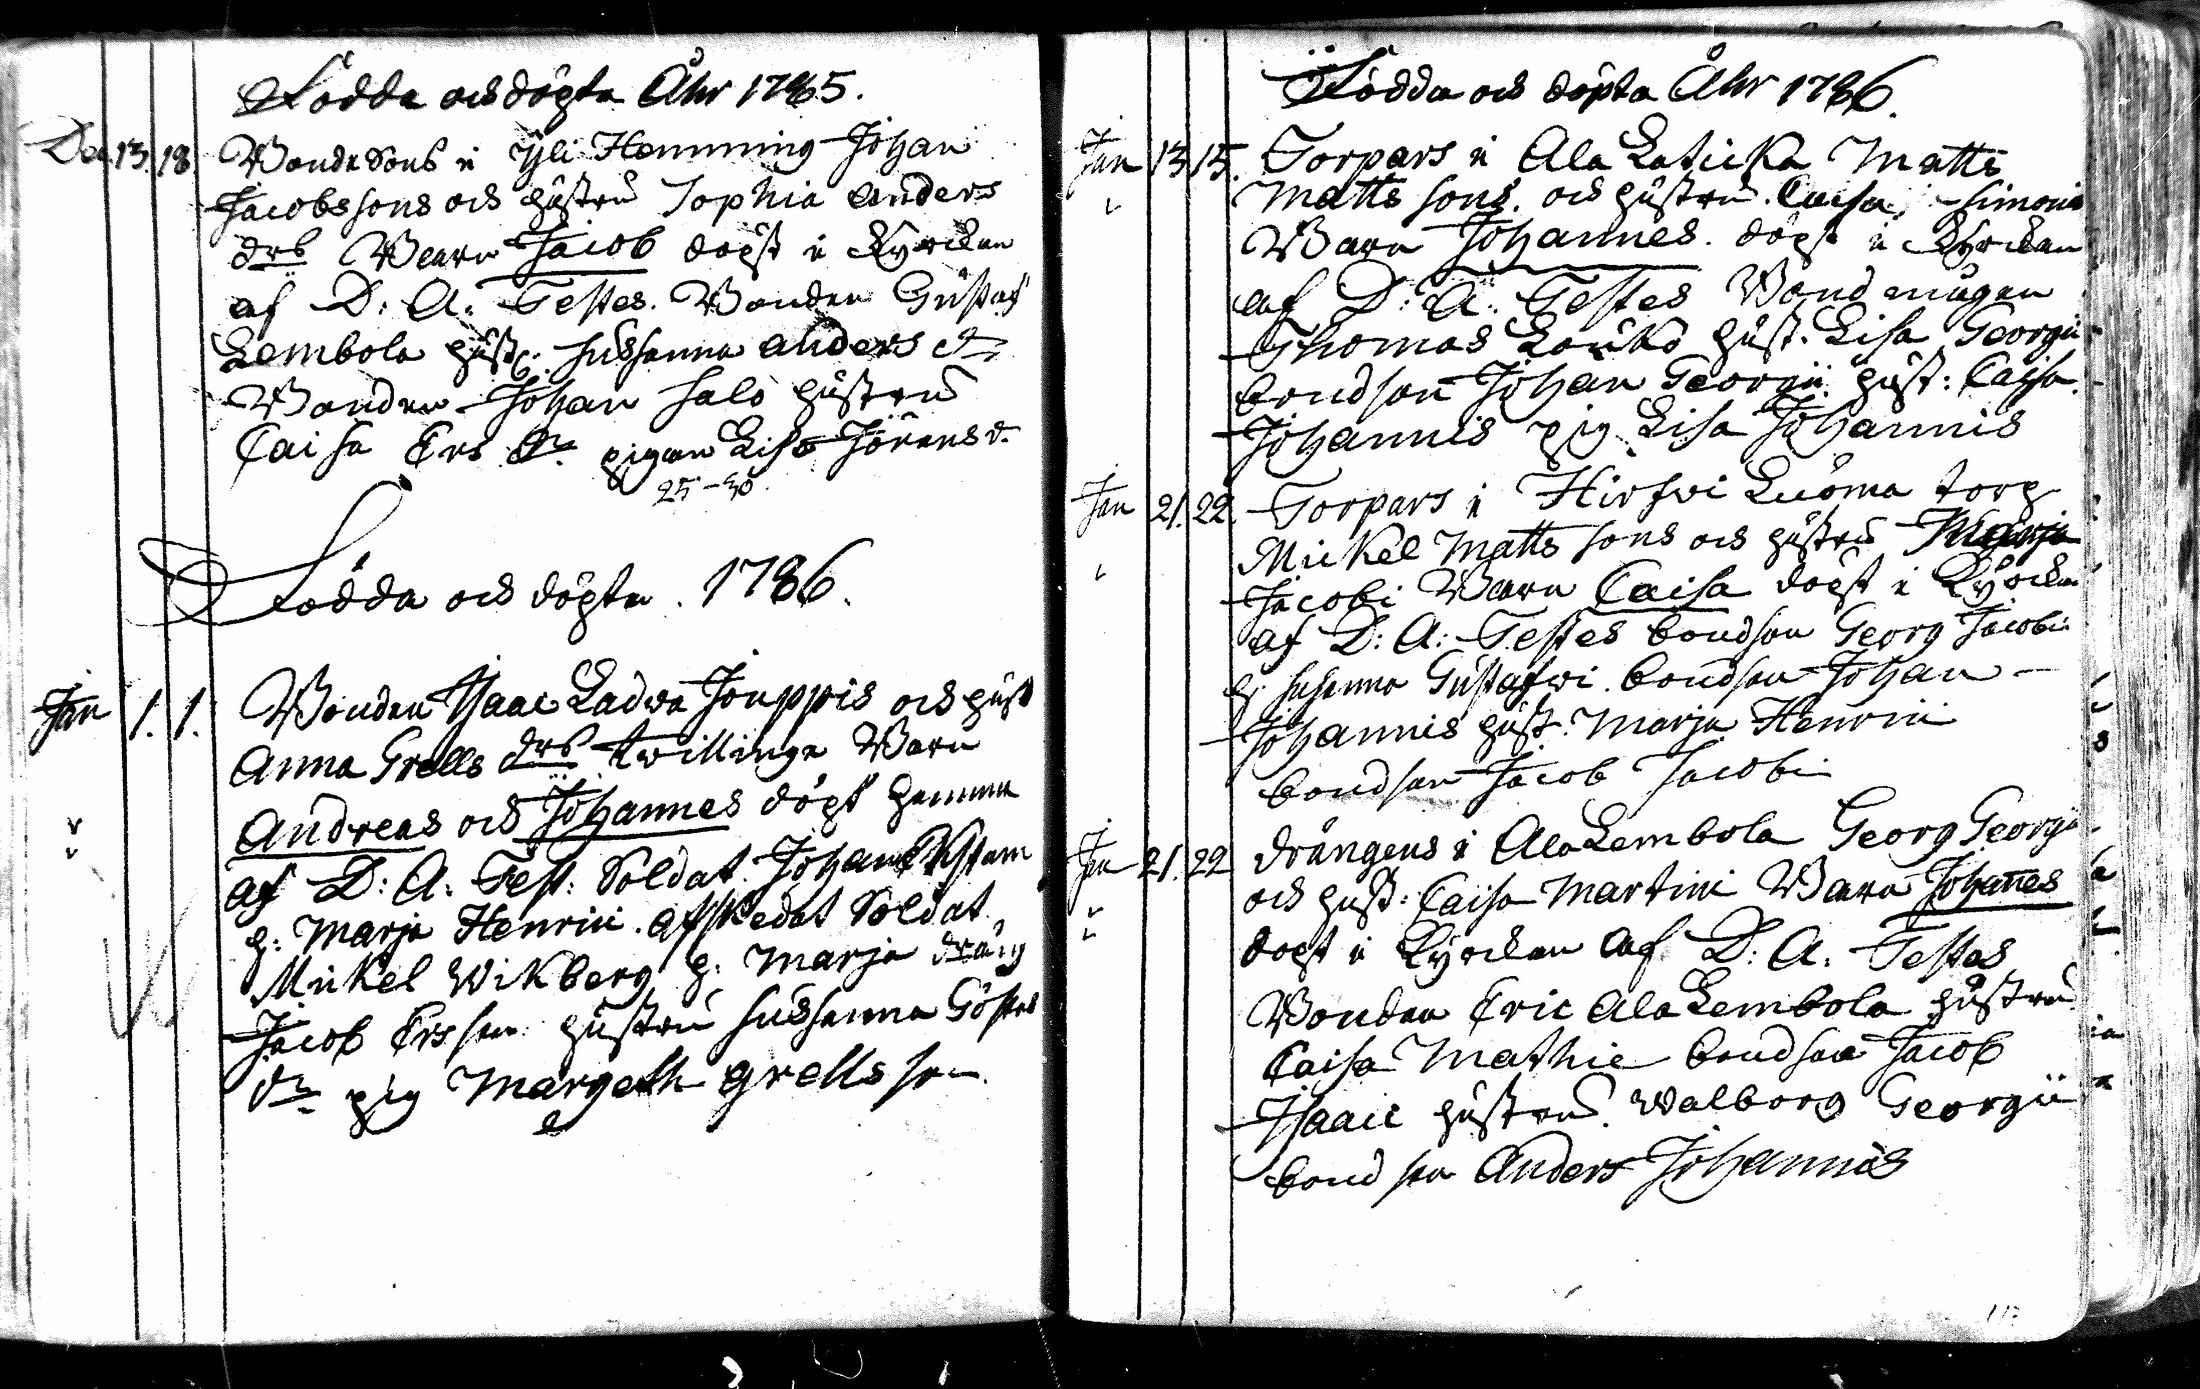 Födde och döpte Åhr 1785.
Dec 13. 18 Bonde Sons i Yli Hemming Johan
Jacobs sons och hustru Sophia Anders
drs Barn Jacob döpt i Kyrckan
af D: A: Testes. Bonden Gustaf
Lembola hust: Sussanna Anders dr
Bonden Johan Salo hustru
Caisa Ers dr pigan Lisa Jörans d.
25-30
Födda och döpta. 1786.
Jan 1. 1. Bonden Isaac Ladwa Jouppis och hust
Anna Grells drs twillinge Barn
Andreas och Johannes döpt hemma
af D: A: Test: Soldat. Johan
h: Marja Henrici. afskedat Soldat
Mickel Wikberg h: Marja dräng
Jacob Ers son hustru Sussanna Göstas
dr pig Margeth Grells
Födda och döpta Åhr 1786.
Jan 13 15. Torpars i Ala Laticka Matts
Matts sons. och hustru. Caisa Simonis
Barn Johannes. döpt i Kyrckan
af D: A: Testes Bond mågen
Thomas Louko hust. Lisa Georgii
bondson Johan Georgii hust: Caisa
Johannis pig. Lisa Johannis
Jan 21. 22. Torpars i Hirswi Luoma torp
Mickel Matts sons och hustru Marja
Jacobi Barn Caisa döpt i Kyrckan
af D: A: Testes bondson Georg Jacobi
h: Susanna Gustafwi. bondson Johan
Johannis hust. Marja Henrici
bondson Jacob Jacobi
Jan 21. 22 drängens i Ala Lembola Georg Georgii
och hust: Caisa Martini Barn Johanes
döpt i Kyrckan af D. A. Testes
Bonden Eric Ala Lembola hustru
Caisa Mathie bondson Jacob
Isaaci hustru. Walborg Georgii
bondson Anders Johannis